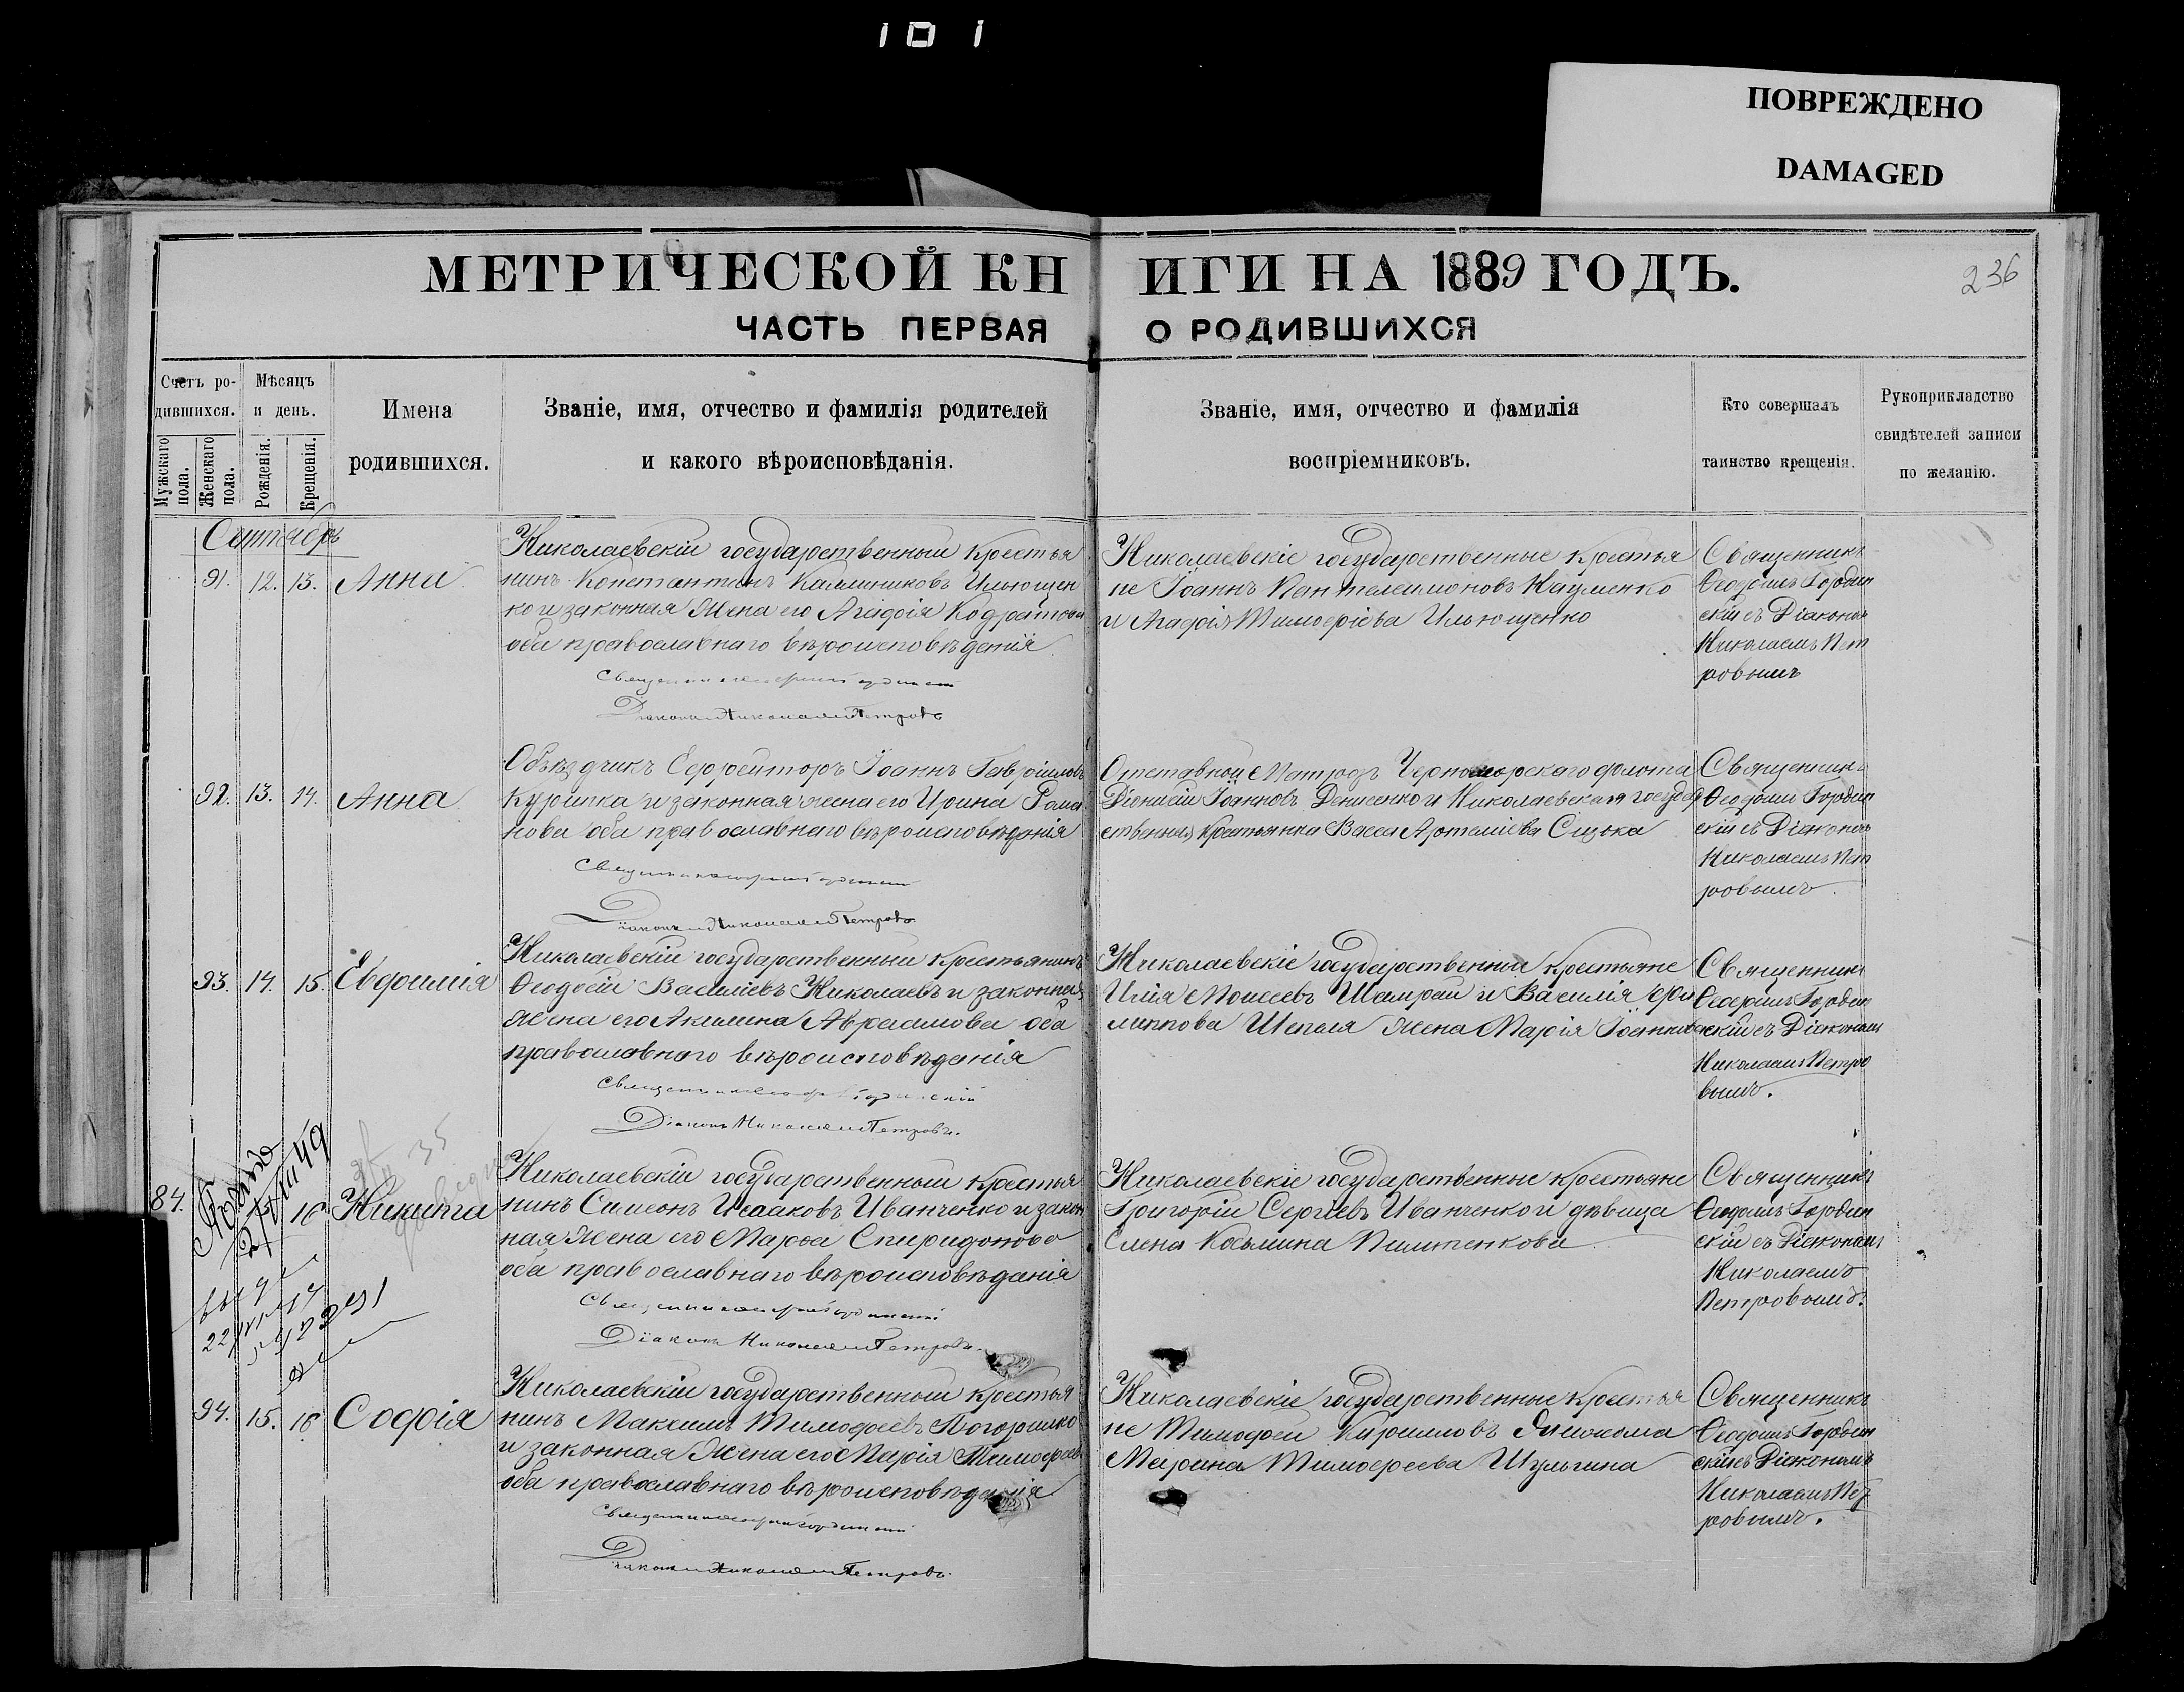 101
ПОВРЕЖДЕНО
DAMAGED
МЕТРИЧЕСКОЙ КНИГИ НА 1889 ГОДЪ.
236
ЧАСТЬ ПЕРВАЯ О РОДИВШИХСЯ
Счетъ ро-
дившихся.
Мужскаго пола.
Женскаго пола.
Мѣсяцъ
и день.
Рожденія.
Крещенія.
Имена
родившихся.
Званіе, имя, отчество и фамилія родителей
и какого вѣроисповѣданія.
Званіе, имя, отчество и фамилія
воспріемниковъ.
Кто совершалъ
таинство крещенія.
Рукоприкладство
свидѣтелей записи
по желанію.
Сентябрь
91. 12. 13. Анна
Николаевскій государственный крестья
нинъ Константинъ Калинниковъ Ильющен
ко и законная жена его Агафія Кодратова
оба православнаго вѣроисповѣданія.
Діаконъ Николай Петровъ
Николаевскіе государственные крестья
не Іоаннъ Пантелеимоновъ Науменко
и Агафія Тимофіева Ильющенко
Священникъ
скій съ Діакономъ
Николаемъ Пет
ровымъ
92. 13. 14. Анна
Объѣздчикъ Ефрейторъ Іоаннъ Гавріиловъ
Курипка и законная жена его Ирина Рома
нова оба православнаго вѣроисповѣданія
Діаконъ Николай Петровъ
Отставной Матрозъ Черноморскаго флота
Діонисій Іоанновъ Денисенко и Николаевская государ
ственная крестьянка Васса Артеміева Сизька
Священникъ
скій съ Діакономъ
Николаемъ Пет
ровымъ.
93. 14. 15. Евфимія
Николаевскій государственный крестьянинъ
Ѳеодосій Василіевъ Николаевъ и законная
жена его Акилина Авраамова оба
православнаго вѣроисповѣданія
Діаконъ Николай Петровъ.
Николаевскіе государственные крестьяне
Илія Моисеевъ Шамрай и Василія Фи
липпова Шепеля жена Марія Іоаннова
Священникъ
скій съ Діакономъ
Николаемъ Петро
вымъ.
84. 15. 16 Никита
35
Николаевскій государственный крестья
нинъ Симеонъ Исааковъ Иванченко и закон
ная жена его Марѳа Спиридонова
оба православнаго вѣроисповѣданія
Діаконъ Николай Петровъ.
Николаевскіе государственные крестьяне
Григорій Сергіевъ Иванченко и дѣвица
Елена Косьмина Пилипенкова
Священникъ
скій съ Діакономъ
Николаемъ
Петровымъ.
94. 15. 16 Софія
Николаевскій государственный крестья
нинъ Максимъ Тимофеевъ Погорилко
и законная жена его Марія Тимофеева
оба православнаго вѣроисповѣданія
Діаконъ Николай Петровъ.
Николаевскіе государственные крестья
не Тимофей Кириловъ
Марина Тимофеева Шульгина
Священникъ
скій съ Діакономъ
Николаемъ Пет
ровымъ.